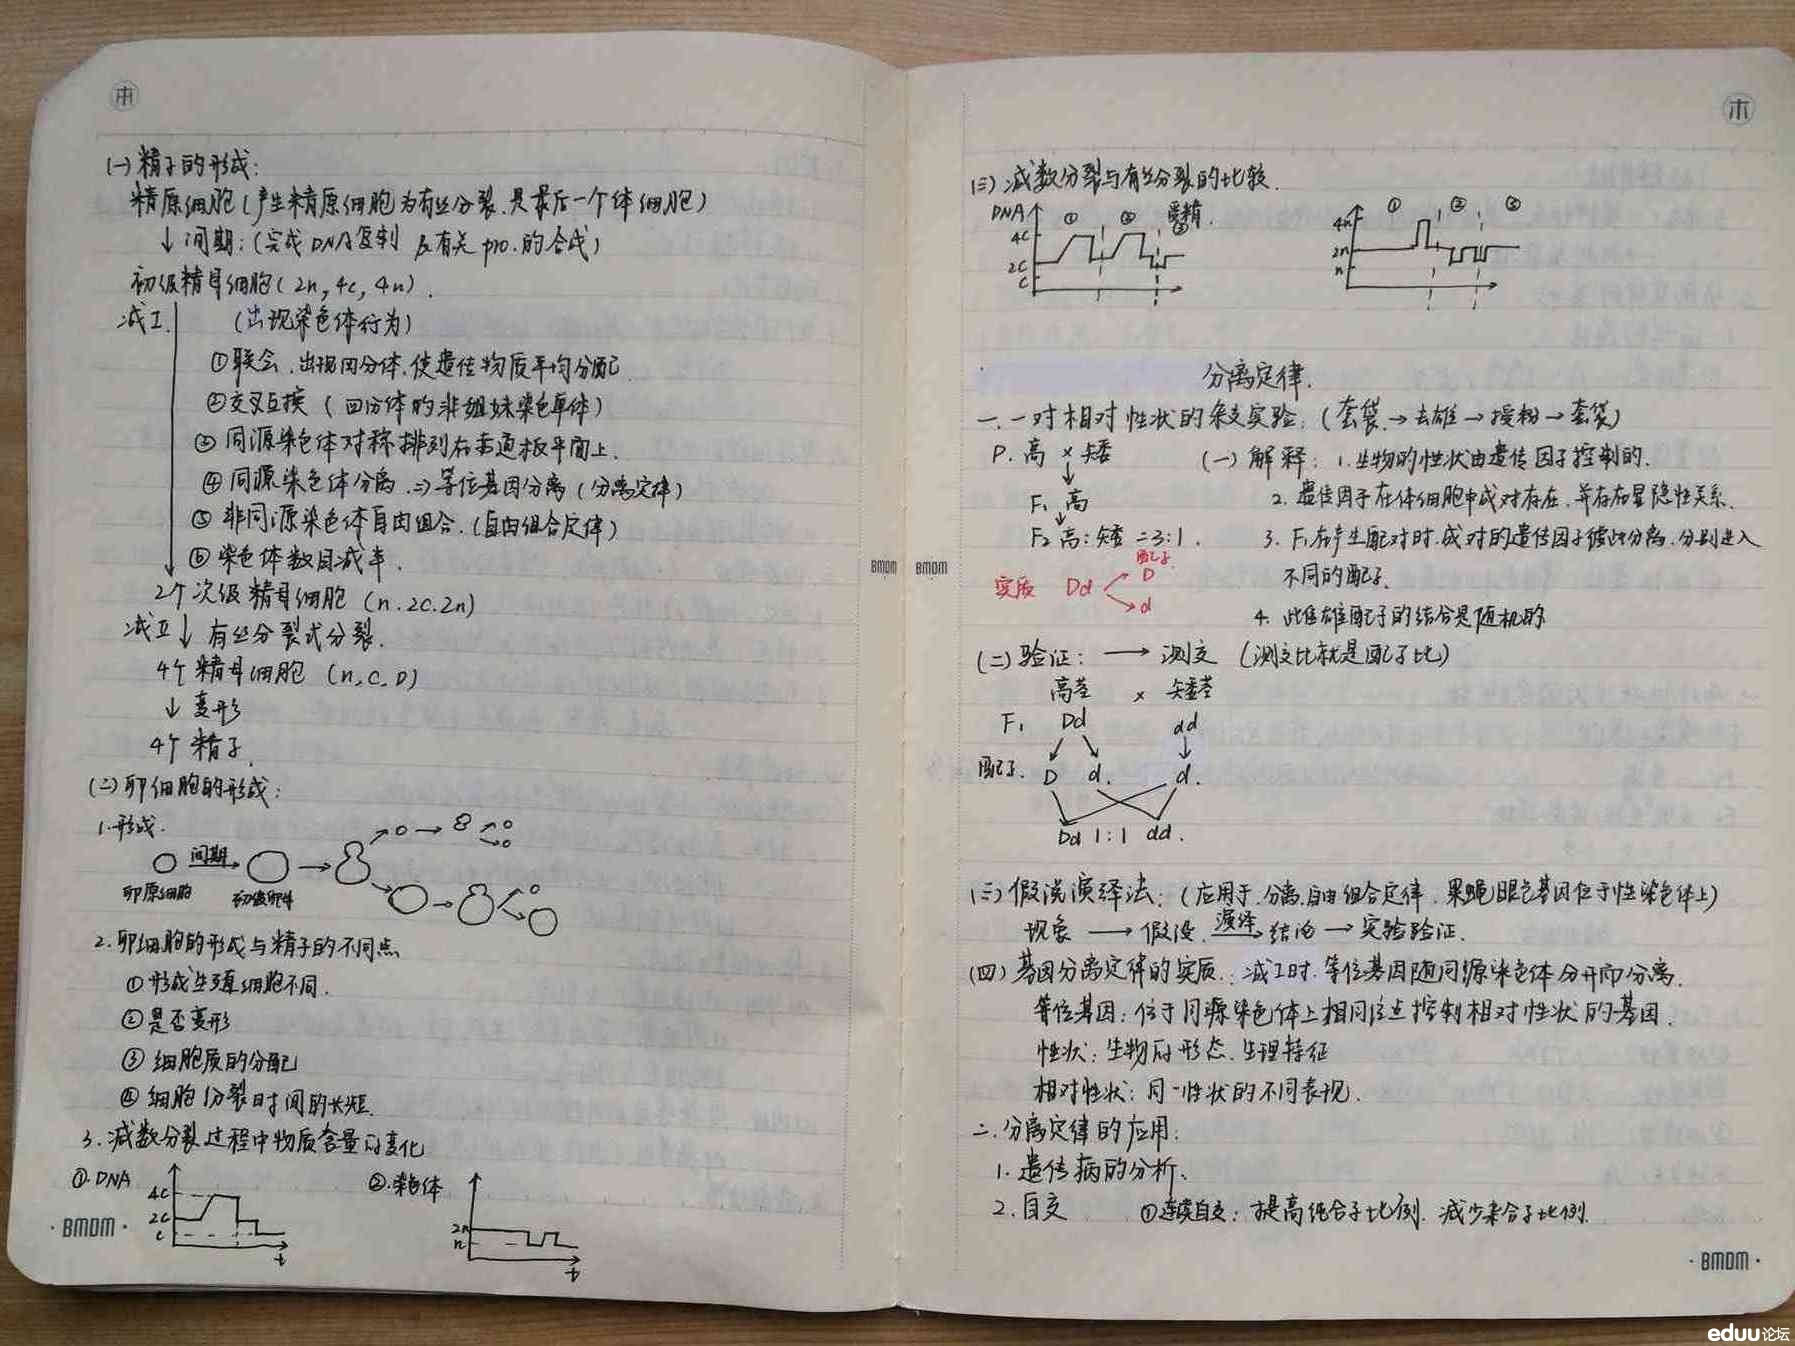 (一) 精子的形成:
精原细胞(产生精原细胞为有丝分裂.是最后一个体细胞)
↓间期:(完成DNA复制 及有关pro.的合成)
初级精母细胞(2n, 4c, 4n).
减I. (出现染色体行为)
①联会.出现四分体.使遗传物质平均分配
②交叉互换(四分体的非姐妹染色单体)
③同源染色体对称排列在赤道板平面上.
④同源染色体分离.⇒等位基因分离(分离定律)
⑤非同源染色体自由组合.(自由组合定律)
⑥染色体数目减半.
2个次级精母细胞(n.2c.2n)
减II↓有丝分裂式分裂.
4个精母细胞(n,c,0)
↓变形
4个精子.
(二)卵细胞的形成:
1.形成.
间期
卵原细胞 初级卵母
2.卵细胞的形成与精子的不同点
①形成生殖细胞不同.
②是否变形
③细胞质的分配
④细胞分裂时间的长短.
3.减数分裂过程中物质含量的变化
①.DNA 4c 2c c t
②.染色体 2n n t
·BMDM·
BMDM
BMDM
(三)减数分裂与有丝分裂的比较.
DNA 4c 2c c ① ② 受精. ③
4n 2n n ① ② ③
分离定律.
一.一对相对性状的杂交实验:(套袋→去雄→授粉→套袋)
P. 高×矮 (一)解释:1.生物的性状由遗传因子控制的.
↓
F₁ 高 2.遗传因子在体细胞中成对存在.并存在显隐性关系.
↓
F₂高:矮=3:1. 3.F₁在产生配对时.成对的遗传因子彼此分离.分别进入
不同的配子.
配子
实质 Dd D d
4.雌雄配子的结合是随机的
(二)验证:→测交(测交比就是配子比)
高茎 × 矮茎
F₁ Dd dd
配子. D d. d.
Dd 1:1 dd.
(三)假说演绎法:(应用于.分离.自由组合定律.果蝇眼色基因位于性染色体上)
现象→假设 演绎→结论→实验验证.
(四)基因分离定律的实质:减I时.等位基因随同源染色体分开而分离.
等位基因:位于同源染色体上相同位点控制相对性状的基因.
性状:生物的形态.生理特征
相对性状:同一性状的不同表现.
二.分离定律的应用:
1.遗传病的分析.
2.自交 ①连续自交:提高纯合子比例.减少杂合子比例.
·BMDM·
eduu论坛